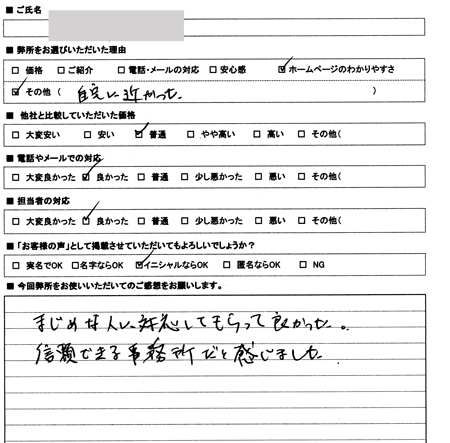 ■ ご氏名
■ 弊所をお選びいただいた理由
□ 価格 □ご紹介 □電話・メールの対応 □安心感 ☑ホームページのわかりやすさ
☑ その他 ( 自宅に近かった。 )
■ 他社と比較していただいた価格
□ 大変安い □ 安い ☑ 普通 □ やや高い □ 高い □ その他(
■ 電話やメールでの対応
□ 大変良かった ☑ 良かった □ 普通 □ 少し悪かった □ 悪い □ その他(
■ 担当者の対応
□ 大変良かった ☑ 良かった □ 普通 □ 少し悪かった □ 悪い □ その他(
■ 「お客様の声」として掲載させていただいてもよろしいでしょうか？
□ 実名でOK □名字ならOK ☑イニシャルならOK □ 匿名ならOK □ NG
■ 今回弊所をお使いいただいてのご感想をお願いします。
まじめな人に対応してもらって良かった。
信頼できる事務所だと感じました。